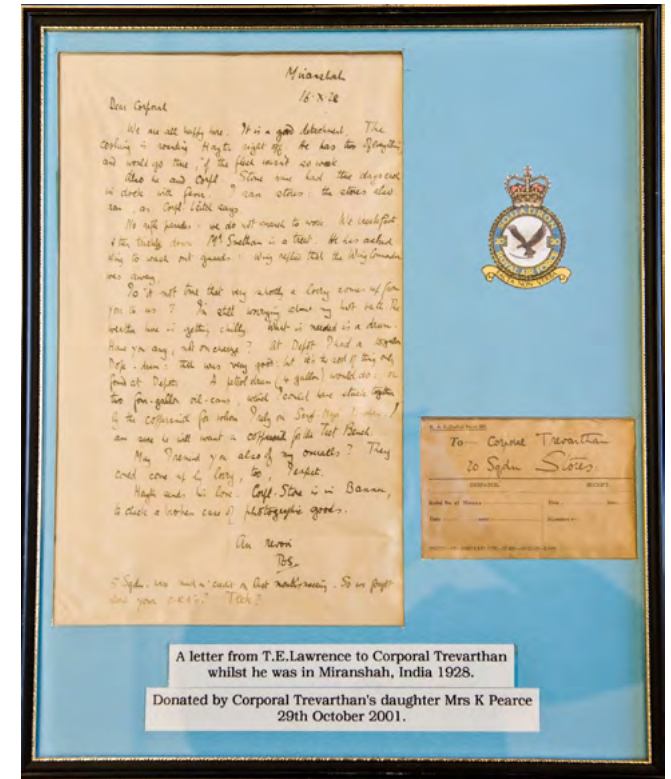 Miranshah
16·X·28
Dear Corporal
We are all happy here. It is a good detachment. The
cooking is Hayter right off. He has two
and would go true, if the flesh weren't so weak.
Also he and Corpl Stone have had three days each
in dock with fever. I ran stores: the stores also
ran, as Corpl says
No rifle parades: we do not march to work. We
down. Mr Smetham is a treat. He has asked
Wing to wash out guards: Wing replies that the Wing Commander
was away.
Is it not true that very shortly a lorry comes up from
you to us? I'm still worrying about my hot bath. The
weather here is getting chilly. What is needed is a drum.
Have you any, not on charge? At Depot I had a
Dope-drum: that was very good: but it's the sort of thing only
found at Depots. A petrol drum (4 gallon) would do: or
two four-gallon oil-cans, which I could have stuck together
by the coppersmith for whom I rely on I
am sure he will want a coppersmith for the Test Bench.
May I remind you also of my overalls? They
could come up by lorry, too, perhaps.
sends his love. Corpl. Stone is in Bannu,
to check a broken case of photographic goods.
Au revoir
TES
5 Sqdn. was in credit on last month's messing. So we forget
your
SQUADRON
ROYAL AIR FORCE
To— Corporal Trevarthan
20 Sqdn Stores.
DESPATCH. RECEIPT.
A letter from T.E.Lawrence to Corporal Trevarthan
whilst he was in Miranshah, India 1928.
Donated by Corporal Trevarthan's daughter Mrs K Pearce
29th October 2001.